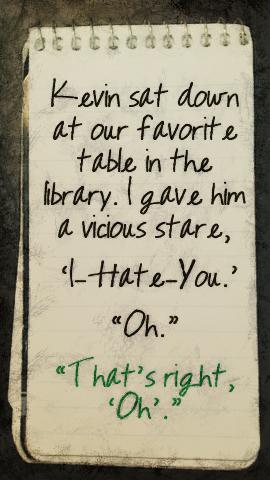 Kevin sat down
at our favorite
table in the
library. I gave him
a vicious stare,
‘I-Hate-You.’
“Oh.”
“That’s right,
‘Oh’.”